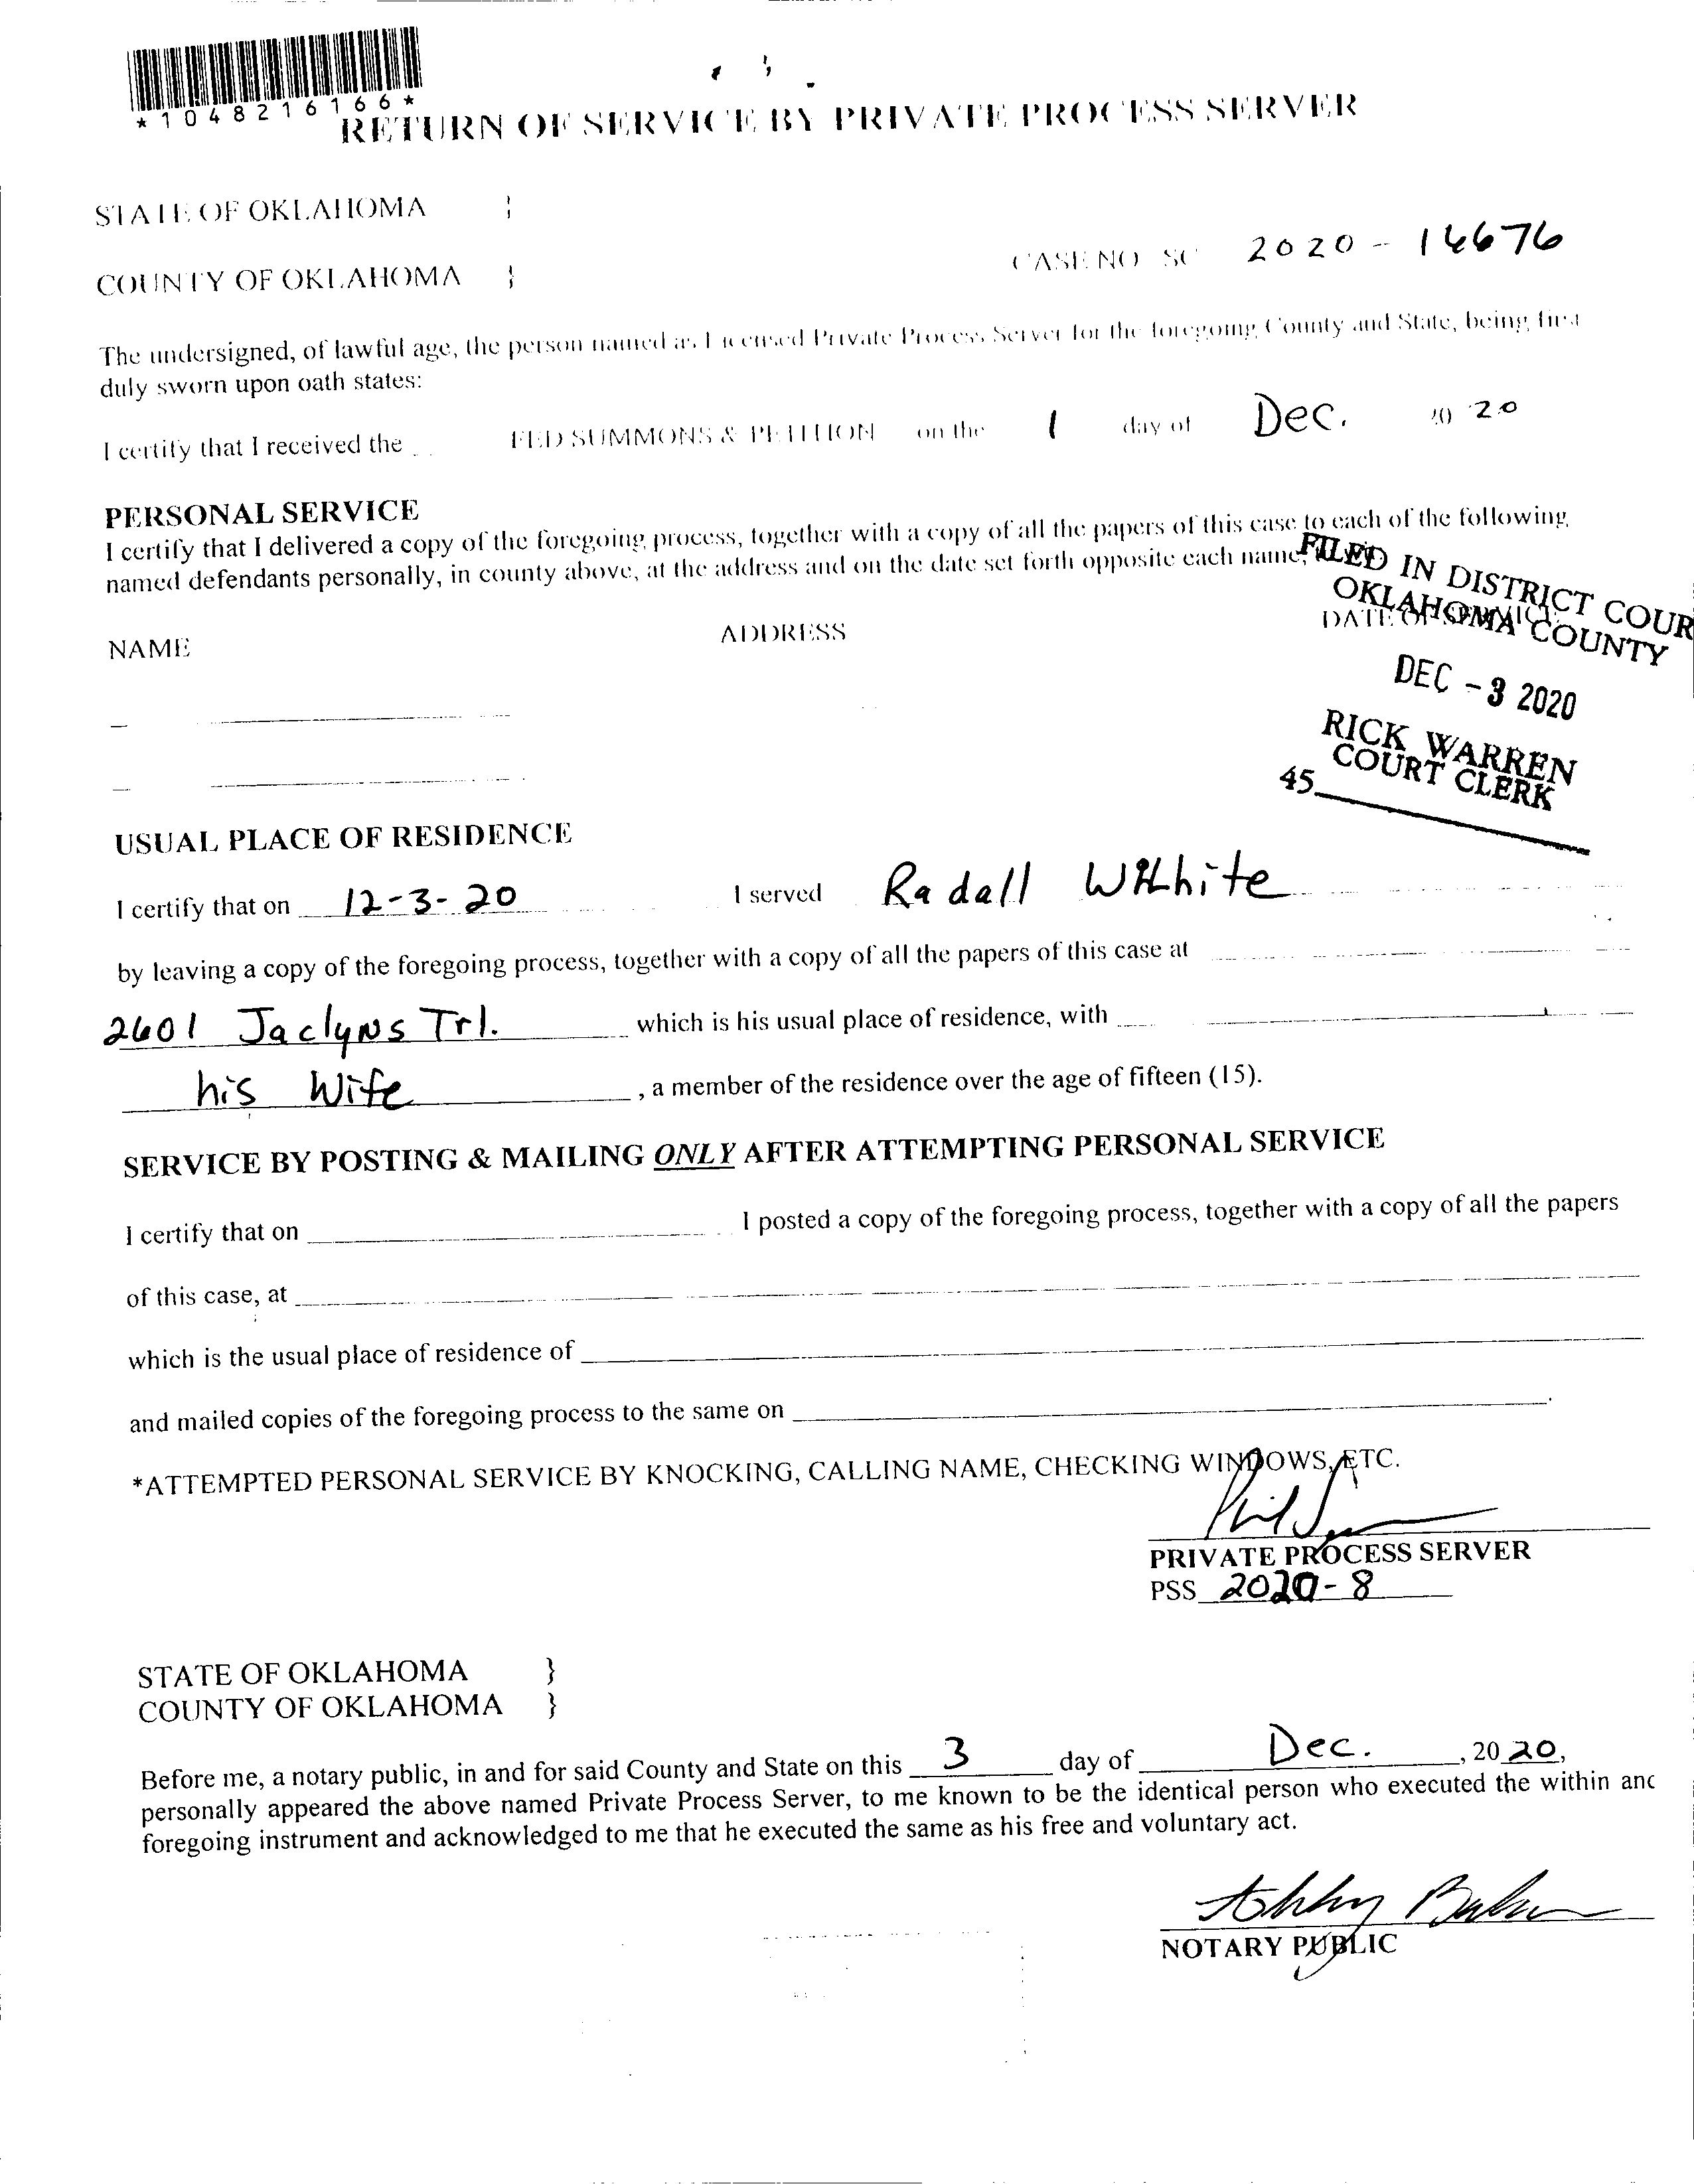 *1048216166*
RETURN OF SERVICE BY PRIVATE PROCESS SERVER
STATE OF OKLAHOMA }
CASE NO SC 2020 - 16676
COUNTY OF OKLAHOMA }
The undersigned, of lawful age, the person named as Licensed Private Process Server for the foregoing County and State, being first
duly sworn upon oath states:
I certify that I received the FED SUMMONS & PETITION on the 1 day of Dec. 20 20
PERSONAL SERVICE
I certify that I delivered a copy of the foregoing process, together with a copy of all the papers of this case to each of the following
named defendants personally, in county above, at the address and on the date set forth opposite each name,
FILED IN DISTRICT COUR
OKLAHOMA COUNTY
NAME ADDRESS DATE OF SERVICE
DEC -3 2020
RICK WARREN
COURT CLERK
45
USUAL PLACE OF RESIDENCE
I certify that on 12-3-20 I served Radall Wilhite
by leaving a copy of the foregoing process, together with a copy of all the papers of this case at
2601 Jaclyns Trl. which is his usual place of residence, with
his Wife , a member of the residence over the age of fifteen (15).
SERVICE BY POSTING & MAILING ONLY AFTER ATTEMPTING PERSONAL SERVICE
I certify that on I posted a copy of the foregoing process, together with a copy of all the papers
of this case, at
which is the usual place of residence of
and mailed copies of the foregoing process to the same on .
*ATTEMPTED PERSONAL SERVICE BY KNOCKING, CALLING NAME, CHECKING WINDOWS, ETC.
PRIVATE PROCESS SERVER
PSS 2020-8
STATE OF OKLAHOMA }
COUNTY OF OKLAHOMA }
Before me, a notary public, in and for said County and State on this 3 day of Dec. , 20 20,
personally appeared the above named Private Process Server, to me known to be the identical person who executed the within anc
foregoing instrument and acknowledged to me that he executed the same as his free and voluntary act.
NOTARY PUBLIC